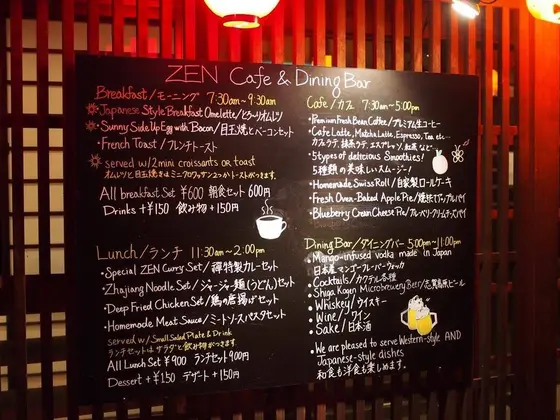 ZEN Cafe & Dining Bar
Breakfast/モーニング 7:30am~9:30am
Japanese Style Breakfast Omelette/とろ~りオムレツ
Sunny Side Up Egg with Bacon/目玉焼とベーコンセット
・French Toast/フレンチトースト
served w/2mini croissants or toast
オムレツと目玉焼きはミニクロワッサン2つかトーストがつきます。
All breakfast Set ¥600 朝食セット 600円
Drinks +¥150 飲み物 +150円
Lunch/ランチ 11:30am~2:00pm
・Special ZEN Curry Set/禅特製カレーセット
・Zhajiang Noodle Set/ジャージャー麺(うどん)セット
・Deep Fried Chicken Set/鶏の唐揚げセット
・Homemade Meat Sauce/ミートソースパスタセット
served w/Small Salad Plate & Drink
ランチセットはサラダと飲み物がつきます。
All Lunch Set ¥900 ランチセット900円
Dessert +¥150 デザート +150円
Cafe/カフェ 7:30am~5:00pm
・Premium Fresh Bean Coffee/プレミアム生コーヒー
・Cafe Latte, Matcha Latte, Espresso, Tea etc...
カフェラテ、抹茶ラテ、エスプレッソ、紅茶など
・5types of delicious Smoothies!
5種類の美味しいスムージー!
・Homemade Swiss Roll/自家製ロールケーキ
・Fresh Oven-Baked Apple Pie/焼きたてアップルパイ
・Blueberry Cream Cheese Pie/ブルーベリークリームチーズパイ
Dining Bar/ダイニングバー 5:00pm~11:00pm
・Mango-infused vodka made in Japan
日本産マンゴーフレーバーウォッカ
・Cocktails/カクテル各種
・Shiga Kogen Microbrewery Beer/志賀高原ビール
・Whiskey/ウイスキー
・Wine/ワイン
・Sake/日本酒
・We are pleased to serve Western-style AND
Japanese-style dishes
和食も洋食も楽しめます。